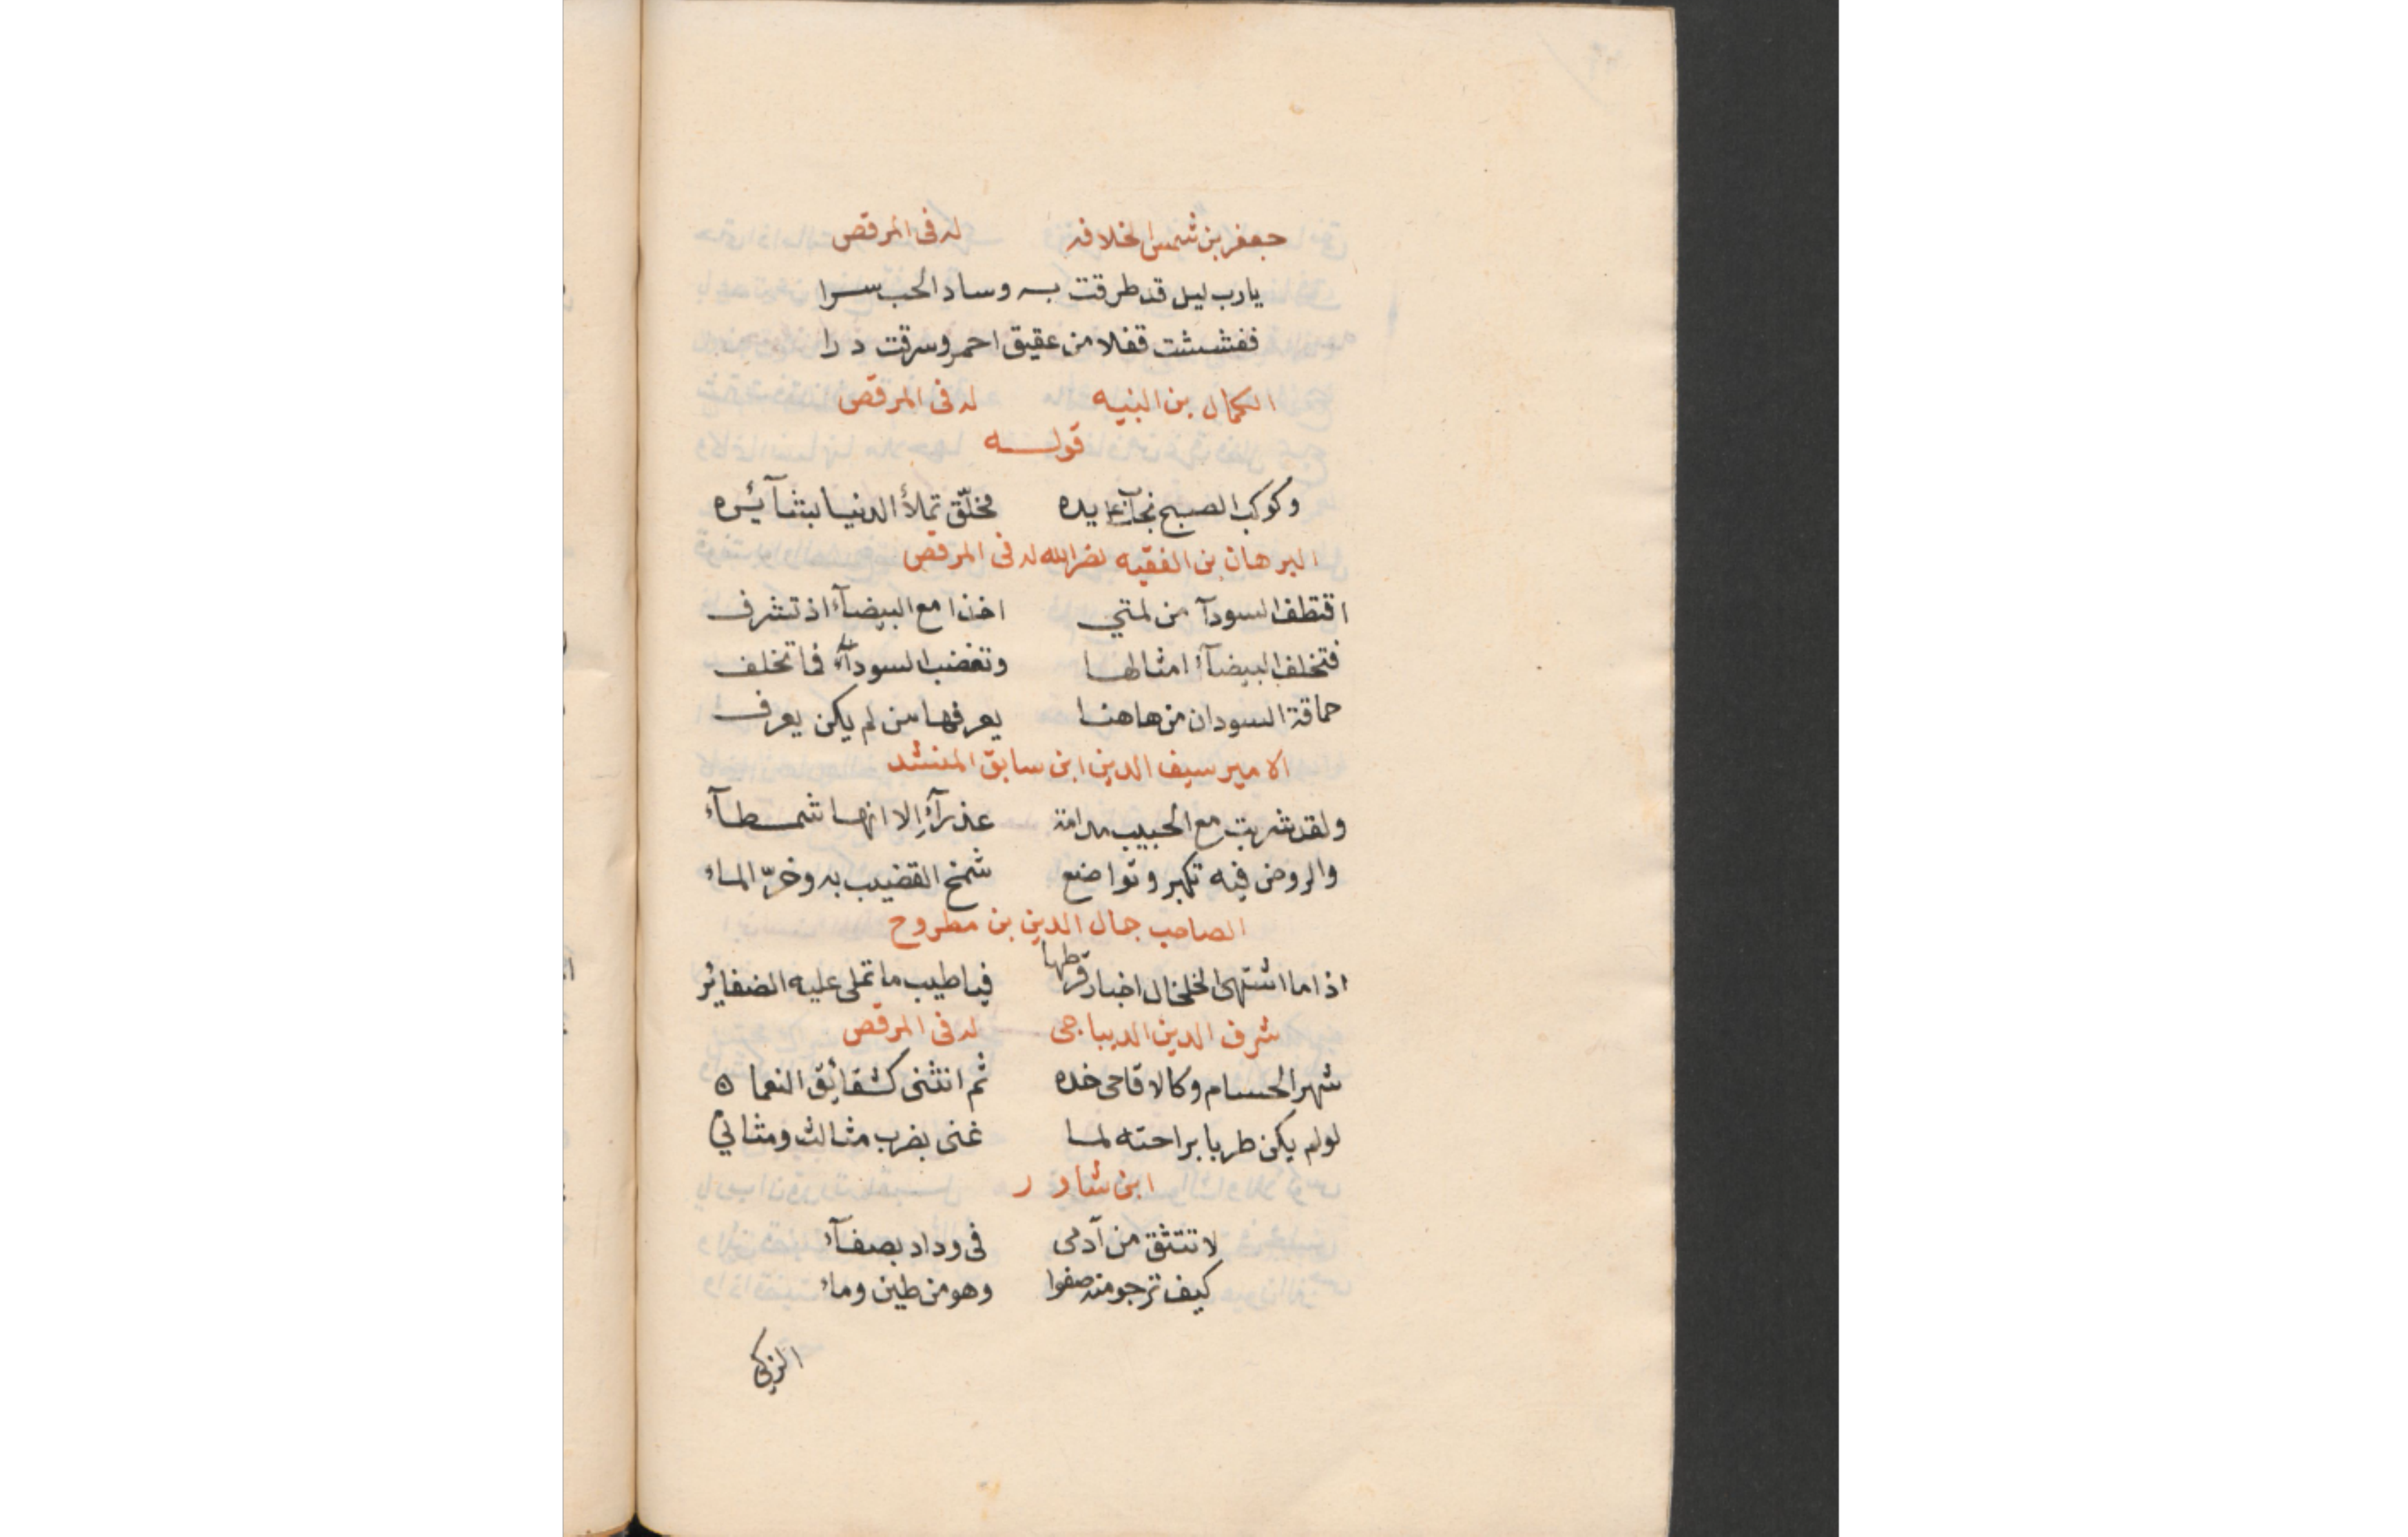 جعفر بن شمس الخلافه له فى المرقص
يارب ليل قد طرقت به وساد الحب سرا
ففششت قفلا من عقيق احمر وسرقت درا
الكمال بن النبيه له فى المرقص
قوله
وكوكب الصبح نجاب على يده مخلّق تملأ الدنيا بشآئره
البرهان بن الفقيه نصر الله له فى المرقص
اقتطف السودآ من لمتي اخذا مع البيضآء اذ تشرف
فتخلف البيضآء امثالها وتغضب السودآء فما تخلف
حماقة السودان من هاهنا يعرفها من لم يكن يعرف
الامير سيف الدين ابن سابق المنشد
ولقد شربت مع الحبيب مدامة عذرآء إلا انها شمطآء
والروض فيه تكبر وتواضع شمخ القضيب به وخرّ الماء
الصاحب جمال الدين بن مطروح
اذا ما اشتهى الخلخال اخبار قرطها فيا طيب ما تملى عليه الضفائر
شرف الدين الديباجى له فى المرقص
شهر الحسام وكالاقاحى خده ثم انثنى كشقائق النعمان
لو لم يكن طربا براحته لما غنى بضرب مثالث ومثاني
ابن شاور
لا تتثق من آدمى فى وداد بصفآء
كيف ترجو منه صفوا وهو من طين وماء
الزكى